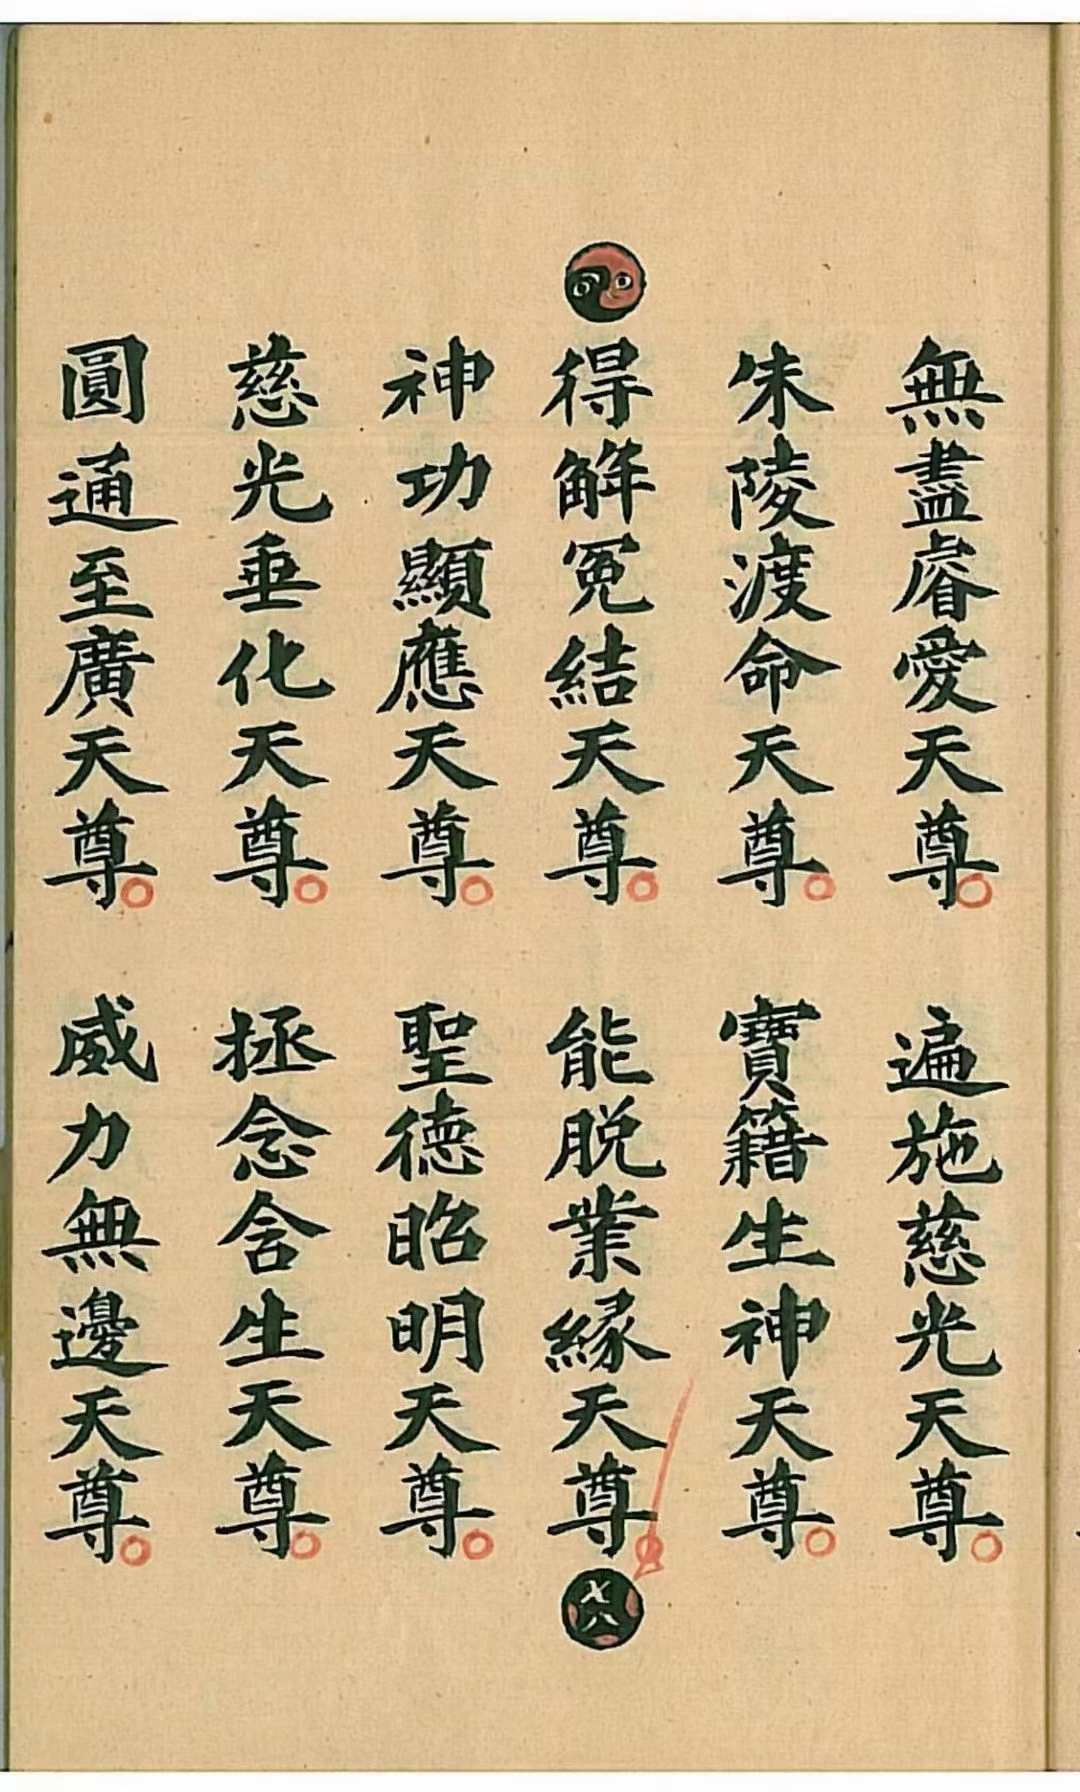 無盡睿愛天尊 遍施慈光天尊
朱陵渡命天尊 寶籍生神天尊
得解冤結天尊 能脱業縁天尊
七八
神功顯應天尊 聖德昭明天尊
慈光垂化天尊 拯念含生天尊
圓通至廣天尊 威力無邊天尊